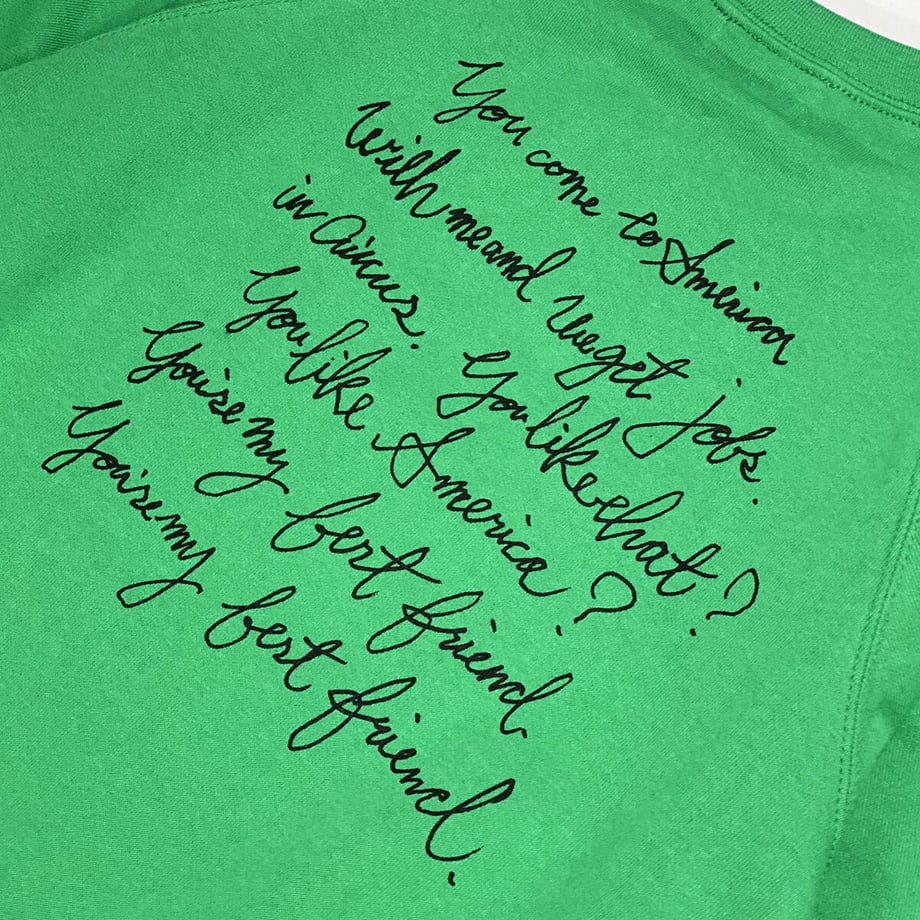 You come to America
With me and we get jobs.
in Circus. You like what?
You like America?
You'se my best friend
You'se my best friend.